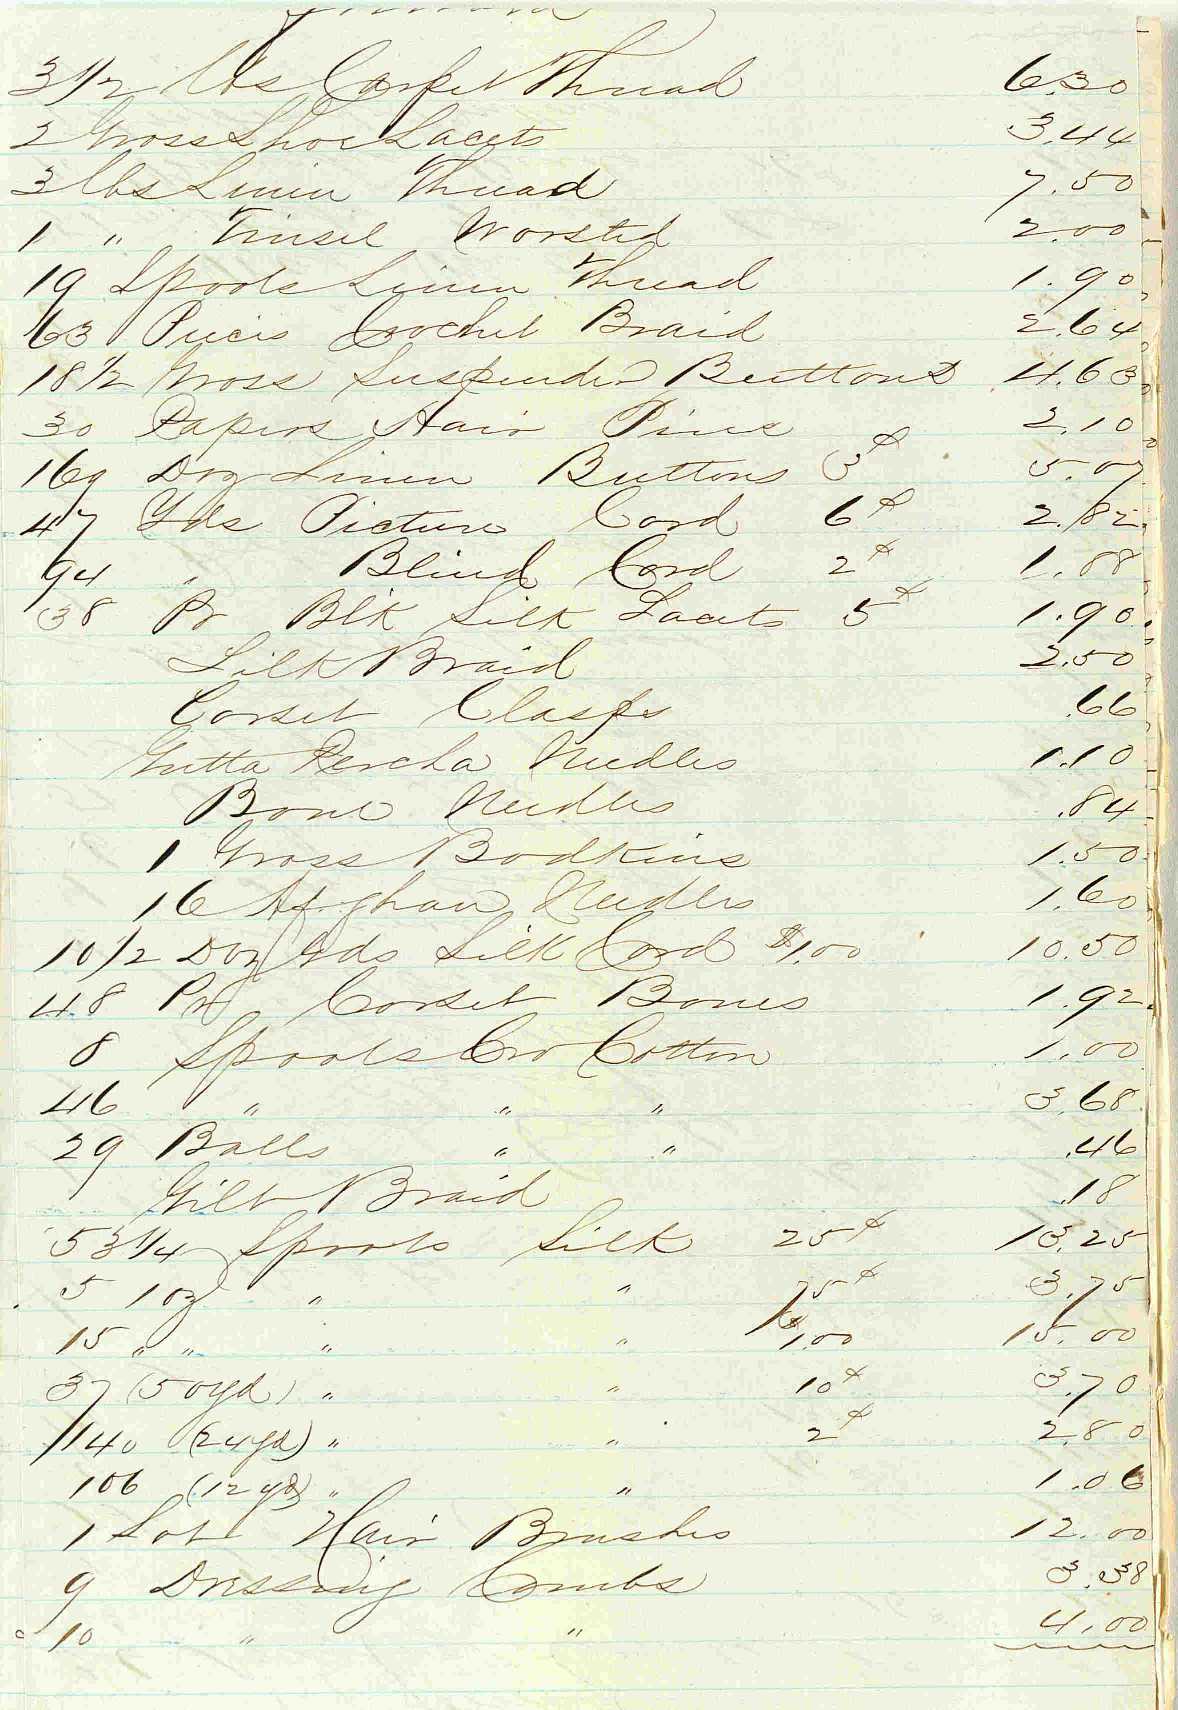 3 1/2 lbs Carpet Thread 6.30
2 Gross Shoe Lacets 3.44
3 lbs Linen Thread 7.50
1 " Tinsel Worsted 2.00
19 Spools Linen Thread 1.90
63 Pieces Crochet Braid 2.64
18 1/2 Gross Suspender Buttons 4.63
30 Papers Hair Pins 2.10
169 Doz Linen Buttons 3¢ 5.07
47 Yds Picture Cord 6¢ 2.82
94 " Blind Cord 2¢ 1.88
38 Pr Blk Silk Lacets 5¢ 1.90
Silk Braid 2.50
Corset Clasps .66
Gutta Percha Needles 1.10
Bone Needles .84
1 Gross Bodkins 1.50
16 Afghan Needles 1.60
10 1/2 Doz Yds Silk Cord $1.00 10.50
48 Pr Corset Bones 1.92
8 Spools Cro Cotton 1.00
46 " " " 3.68
29 Balls " " .46
Gilt Braid .18
53 1/4 Spools Silk 25¢ 13.25
5 1 oz " " 75¢ 3.75
15 " " " " 1.00 15.00
37 (50yd) " " 10¢ 3.70
140 (24yd) " " 2¢ 2.80
106 (12yd) " " 1.06
1 Lot Hair Brushes 12.00
9 Dressing Combs 3.38
10 " " 4.00